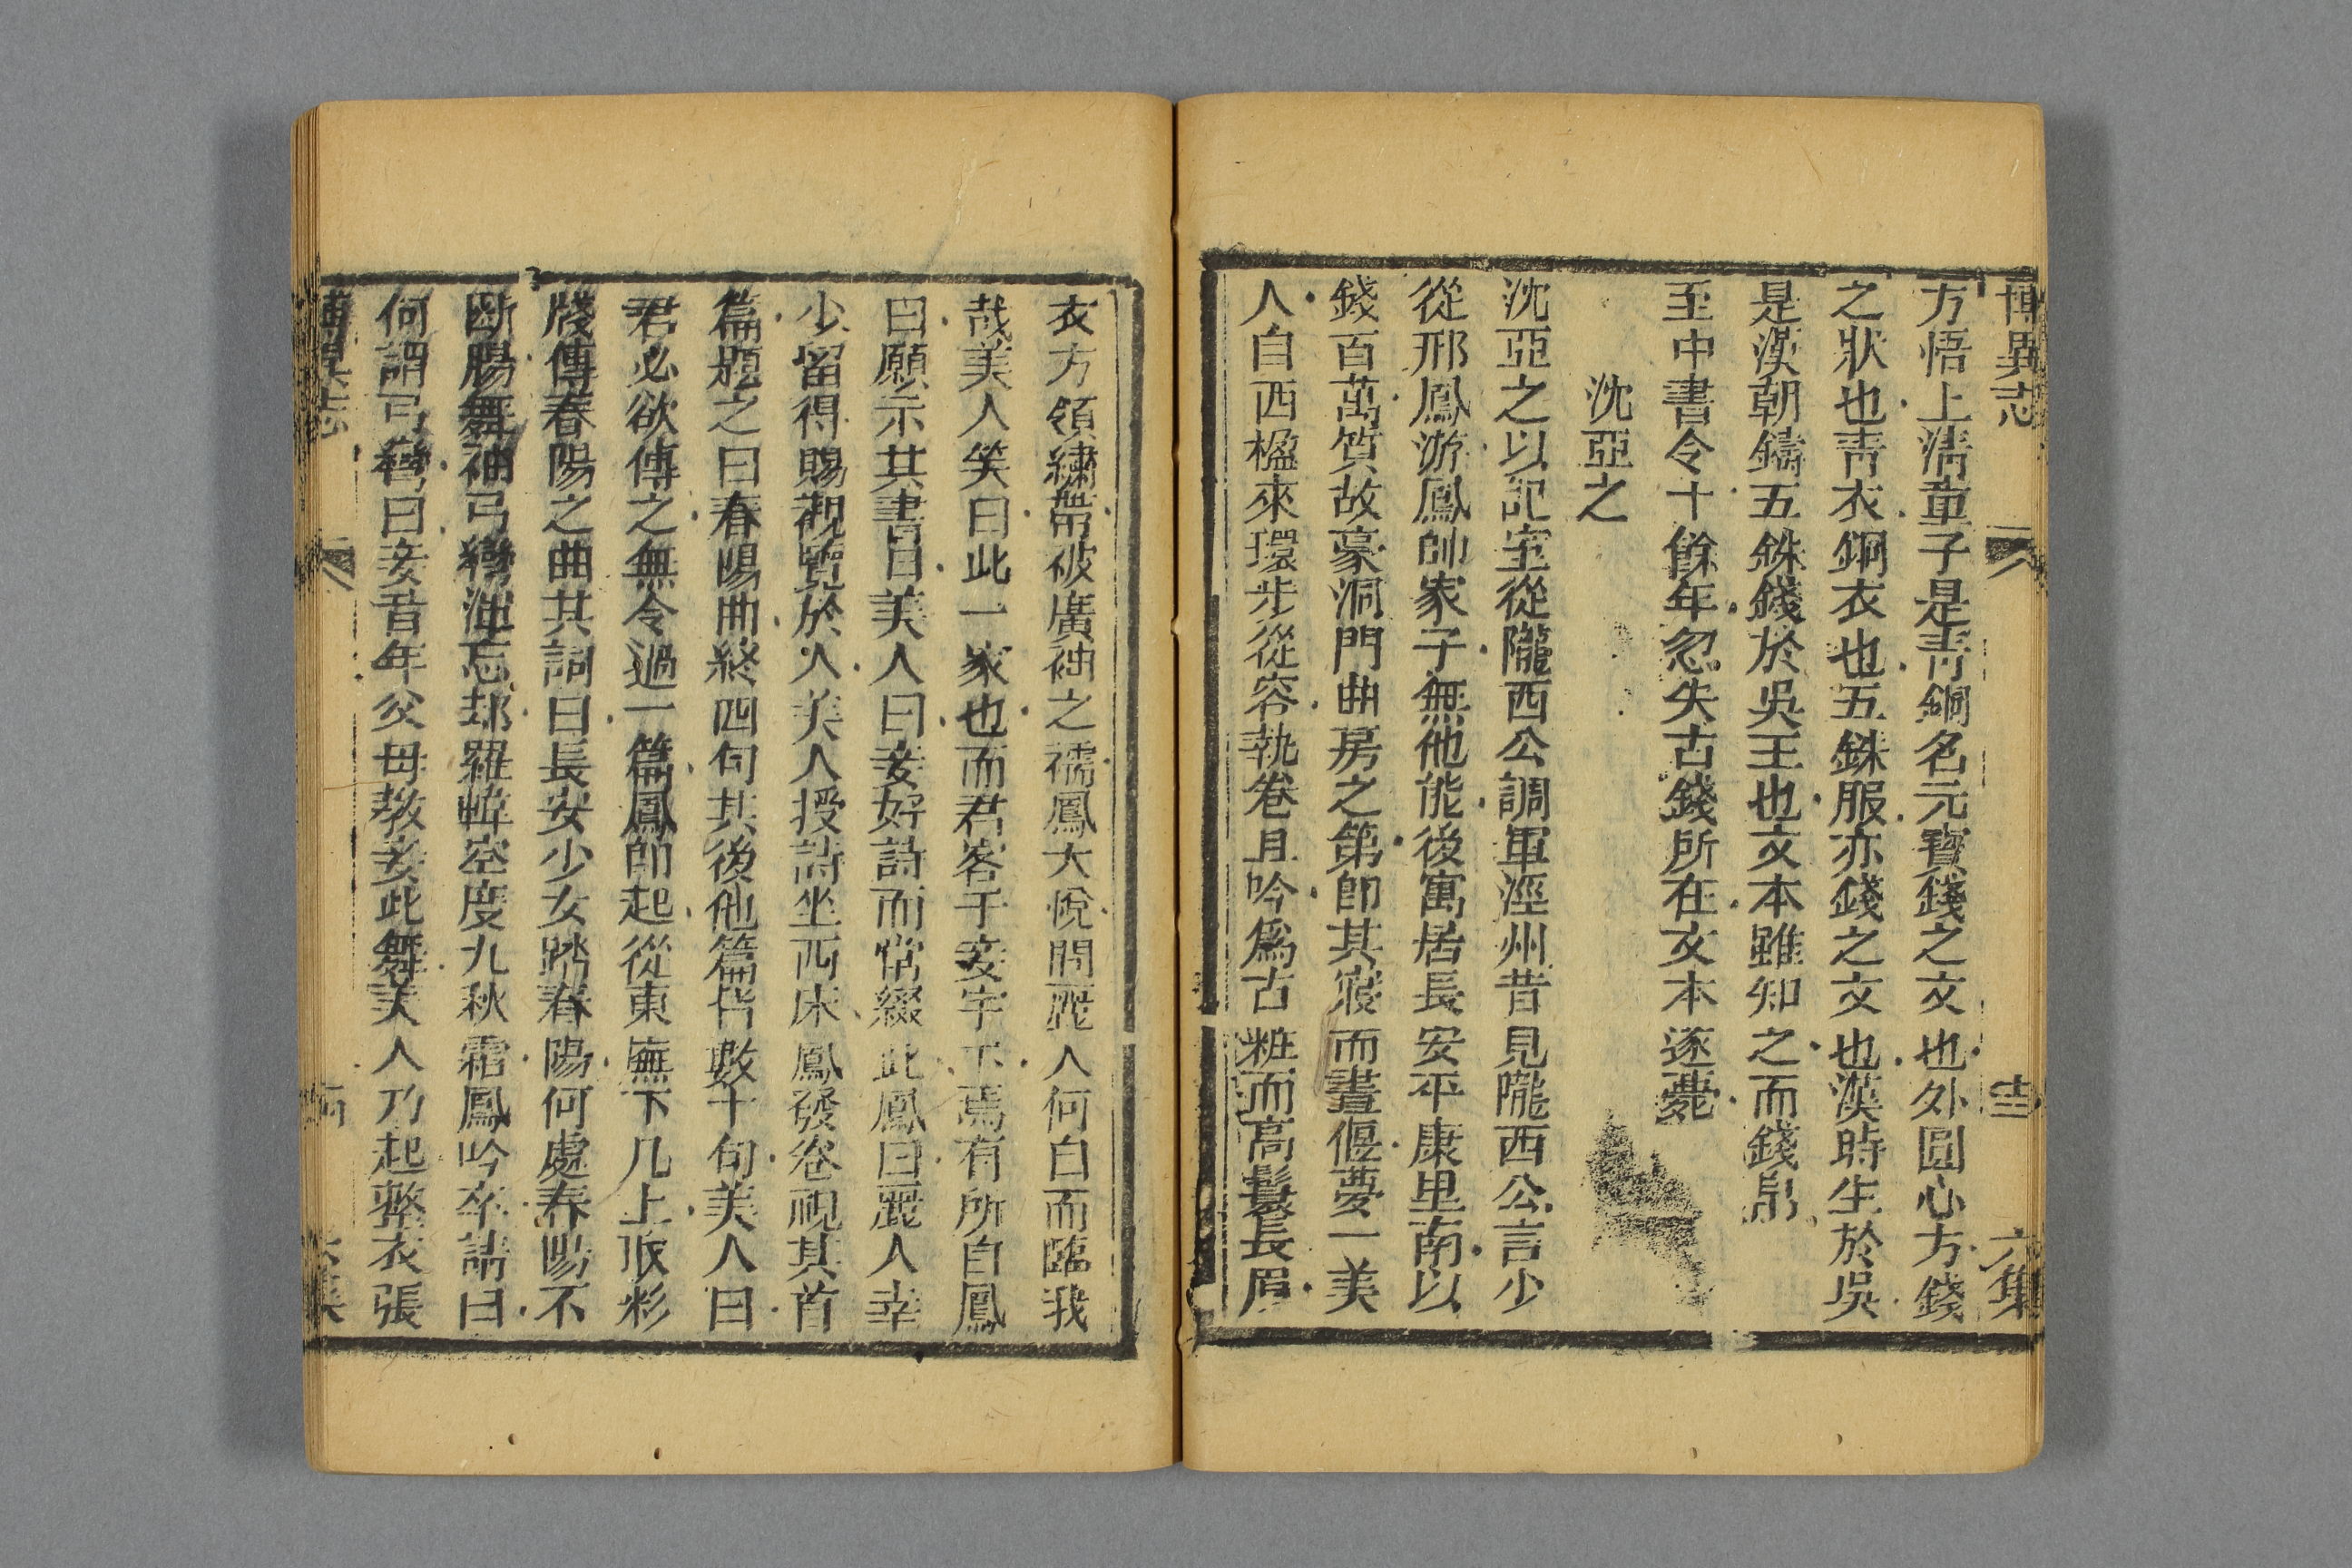 博異志 十三 六集
方悟上清童子是青銅名元寳錢之文也外圓心方錢
之狀也青衣銅衣也五銖服亦錢之文也漢時生於吳
是漢朝鑄五銖錢於吳王也文本雖知之而錢帛
至中書令十餘年忽失古錢所在文本遂薨
沈亞之
沈亞之以記室從隴西公調軍涇州昔見隴西公言少
從邢鳳游鳳帥家子無他能後寓居長安平康里南以
錢百萬質故豪洞門曲房之第卽其寢而晝偃夢一美
人自西楹來環步從容執卷且吟爲古粧而高鬟長眉
衣方領繡帶被廣袖之襦鳳大悅問麗人何自而臨我
哉美人笑曰此一家也而君客于妾宇下焉有所自鳳
曰願示其書目美人曰妾好詩而常綴此鳳曰麗人幸
少留得賜觀覽於人美人授詩坐西床鳳發卷視其首
篇題之曰春陽曲終四句其後他篇皆數十句美人曰
君必欲傳之無令過一篇鳳卽起從東廡下几上取彩
牋傳春陽之曲其詞曰長安少女踏春陽何處春陽不
断腸舞袖弓彎渾忘却羅幃空度九秋霜鳳吟卒請曰
何謂弓彎曰妾昔年父母教妾此舞美人乃起整衣張
博異志 六集